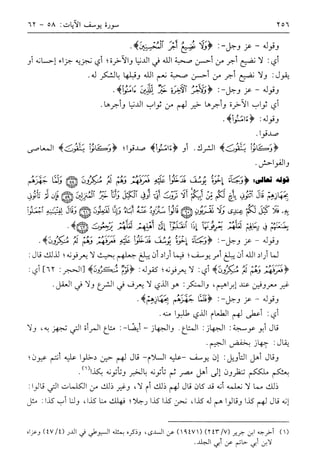 ٢٥٦ سورة يوسف الآيات: ٥٨ - ٦٢
وقوله - عز وجل-: ﴿وَلَا نُضِيعُ أَجْرَ الْمُحْسِنِينَ﴾.
أي: لا نضيع أجر من أحسن صحبة الله في الدنيا والآخرة؛ أي نجزيه جزاء إحسانه أو
يقول: ولا نضيع أجر من أحسن صحبة نعم الله وقبلها بالشكر له.
وقوله - عز وجل-: ﴿وَلَأَجْرُ الْآخِرَةِ خَيْرٌ لِلَّذِينَ آمَنُوا﴾.
أي ثواب الآخرة وأجرها خير لهم من ثواب الدنيا وأجرها.
وقوله: ﴿آمَنُوا﴾.
صدقوا.
﴿وَكَانُوا يَتَّقُونَ﴾ الشرك. أو ﴿آمَنُوا﴾ صدقوا؛ ﴿وَكَانُوا يَتَّقُونَ﴾ المعاصي
والفواحش.
قوله تعالى: ﴿وَجَاءَ إِخْوَةُ يُوسُفَ فَدَخَلُوا عَلَيْهِ فَعَرَفَهُمْ وَهُمْ لَهُ مُنكِرُونَ ۝ وَلَمَّا جَهَّزَهُم
بِجَهَازِهِمْ قَالَ ائْتُونِي بِأَخٍ لَّكُم مِّنْ أَبِيكُمْ أَلَا تَرَوْنَ أَنِّي أُوفِي الْكَيْلَ وَأَنَا خَيْرُ الْمُنزِلِينَ ۝ فَإِن لَّمْ تَأْتُونِي
بِهِ فَلَا كَيْلَ لَكُمْ عِندِي وَلَا تَقْرَبُونِ ۝ قَالُوا سَنُرَاوِدُ عَنْهُ أَبَاهُ وَإِنَّا لَفَاعِلُونَ ۝ وَقَالَ لِفِتْيَانِهِ اجْعَلُوا
بِضَاعَتَهُمْ فِي رِحَالِهِمْ لَعَلَّهُمْ يَعْرِفُونَهَا إِذَا انقَلَبُوا إِلَى أَهْلِهِمْ لَعَلَّهُمْ يَرْجِعُونَ ۝﴾
وقوله - عز وجل-: ﴿وَجَاءَ إِخْوَةُ يُوسُفَ فَدَخَلُوا عَلَيْهِ فَعَرَفَهُمْ وَهُمْ لَهُ مُنكِرُونَ﴾.
لما أراد الله أن يبلغ أمر يوسف؛ فيما أراد أن يبلغ جعلهم بحيث لا يعرفونه؛ لذلك قال:
﴿فَعَرَفَهُمْ وَهُمْ لَهُ مُنكِرُونَ﴾ أي: لا يعرفونه؛ كقوله: ﴿قَوْمٌ مُنكَرُونَ﴾ [الحجر: ٦٢] أي:
غير معروفين عند إبراهيم، والمنكر: هو الذي لا يعرف في الشرع ولا في العقل.
وقوله - عز وجل-: ﴿فَلَمَّا جَهَّزَهُم بِجَهَازِهِمْ﴾.
أي: أعطى لهم الطعام الذي طلبوا منه.
قال أبو عوسجة: الجهاز: المتاع. والجهاز - أيضًا-: متاع المرأة التي تجهز به، ولا
يقال: جهاز بخفض الجيم.
وقال أهل التأويل: إن يوسف -عليه السلام- قال لهم حين دخلوا عليه أنتم عيون؛
بعثكم ملككم تنظرون إلى أهل مصر ثم تأتونه بالخبر وتأتونه بكذا(١).
ذلك مما لا نعلمه أنه قد كان قال لهم ذلك أم لا، وغير ذلك من الكلمات التي قالوا:
إنه قال لهم كذا وقالوا هم له كذا، نحن كذا كذا رجلا؛ فهلك منا كذا، ولنا أب كذا: مثل
(١) أخرجه ابن جرير (٧/٢٤٣) (١٩٤٧١) عن السدى، وذكره بمثله السيوطي في الدر (٤/٤٧) وعزاه
لابن أبي حاتم عن أبي الجلد.